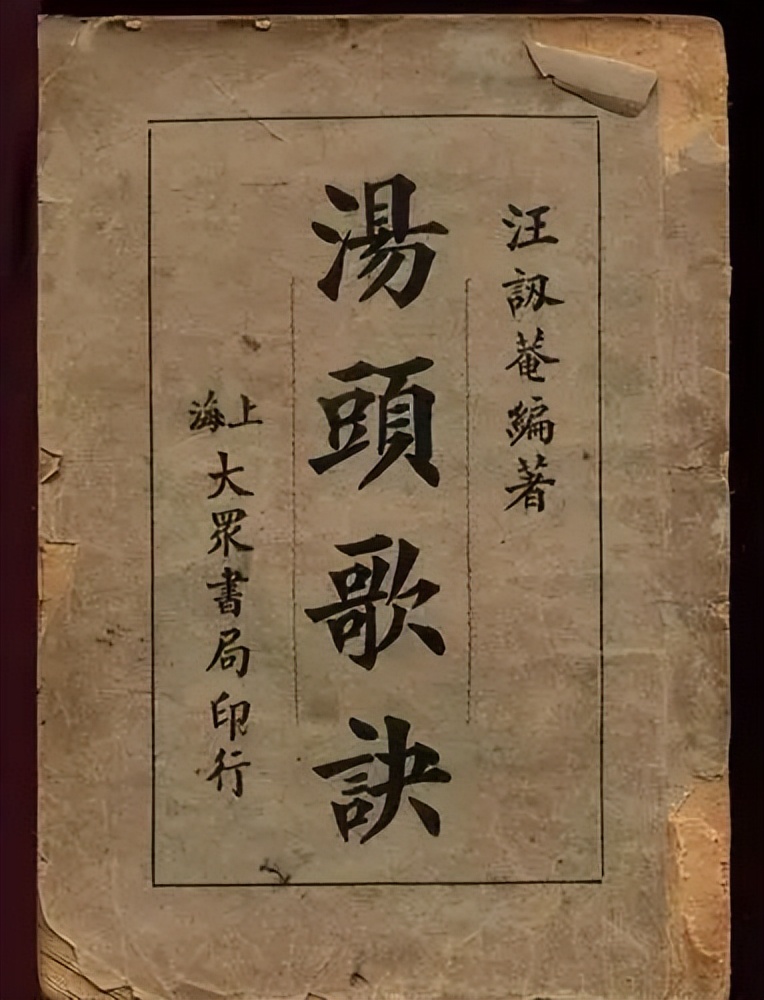 汪訒菴編著
湯頭歌訣
上海
大眾書局印行